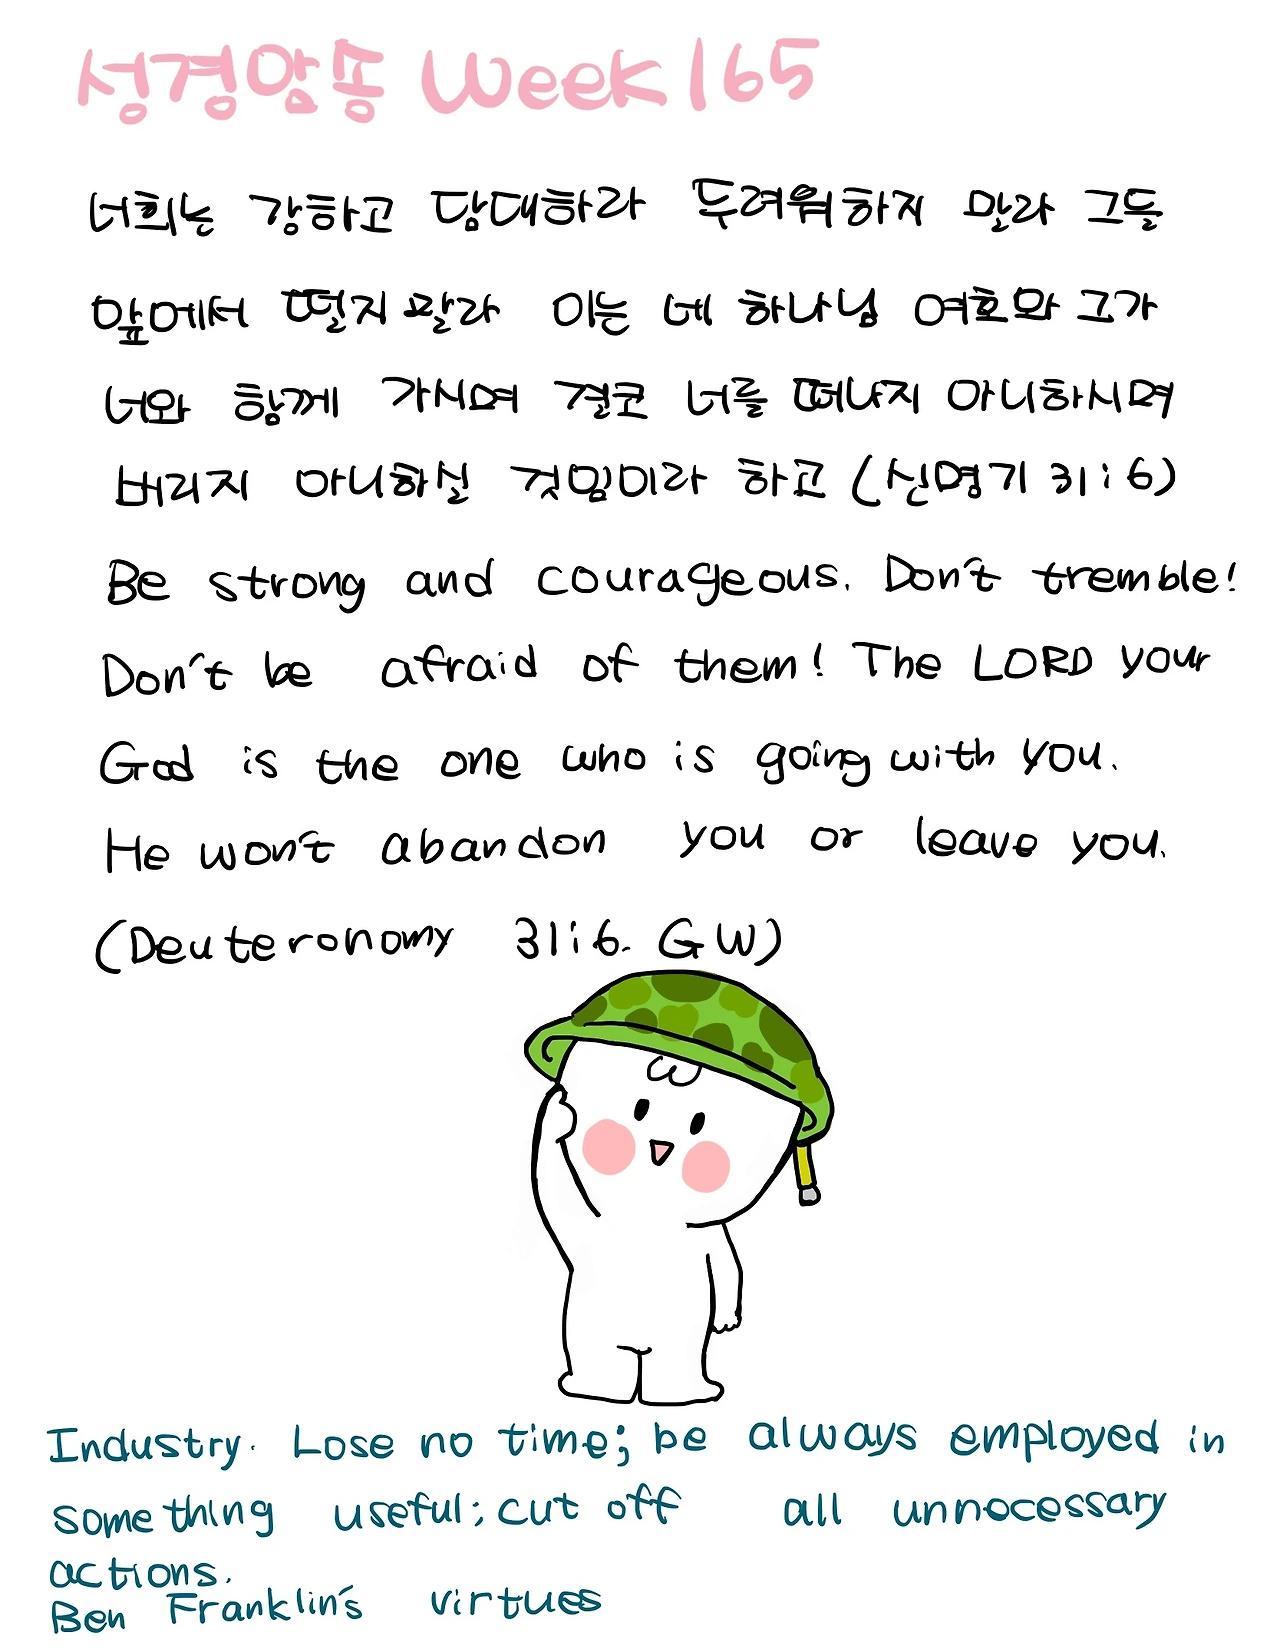 성경암송 Week 165
너희는 강하고 담대하라 두려워하지 말라 그들
앞에서 떨지말라 이는 네 하나님 여호와 그가
너와 함께 가시며 결코 너를 떠나지 아니하시며
버리지 아니하실 것임이라 하고 (신명기 31:6)
Be strong and courageous. Don't tremble!
Don't be afraid of them! The LORD your
God is the one who is going with you.
He won't abandon you or leave you.
(Deuteronomy 31:6. GW)
Industry. Lose no time; be always employed in
something useful; cut off all unnecessary
actions.
Ben Franklin's virtues